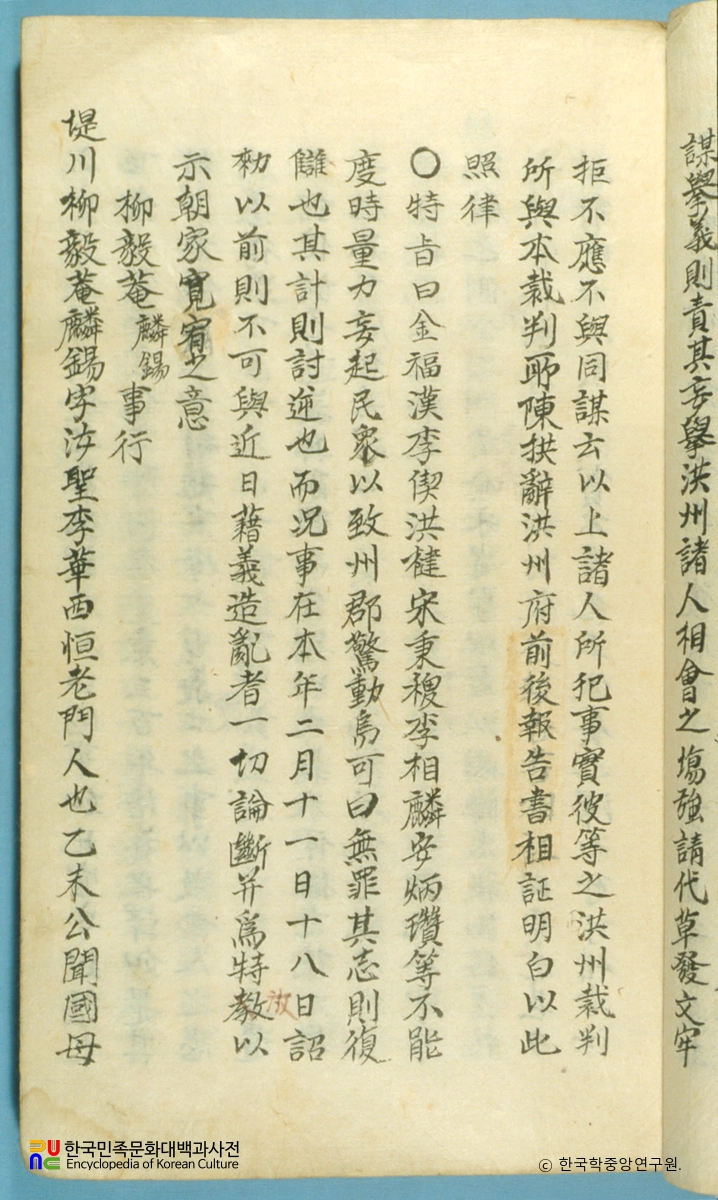 謀擧義則責其妄擧洪州諸人相會之塲强請代草發文牢
拒不應不與同謀云以上諸人所犯事實彼等之洪州裁判
所與本裁判所陳拱辭洪州府前後報告書相証明白以此
照律
〇特旨曰金福漢李偰洪楗宋秉稷李相麟安炳瓚等不能
度時量力妄起民衆以致州郡驚動烏可曰無罪其志則復
讎也其計則討逆也而况事在本年二月十一日十八日詔
勑以前則不可與近日藉義造亂者一切論斷并爲特教以
赦
示朝家寬宥之意
柳毅菴麟錫事行
堤川柳毅菴麟錫字汝聖李華西恒老門人也乙未公聞國母
한국민족문화대백과사전
Encyclopedia of Korean Culture
© 한국학중앙연구원.